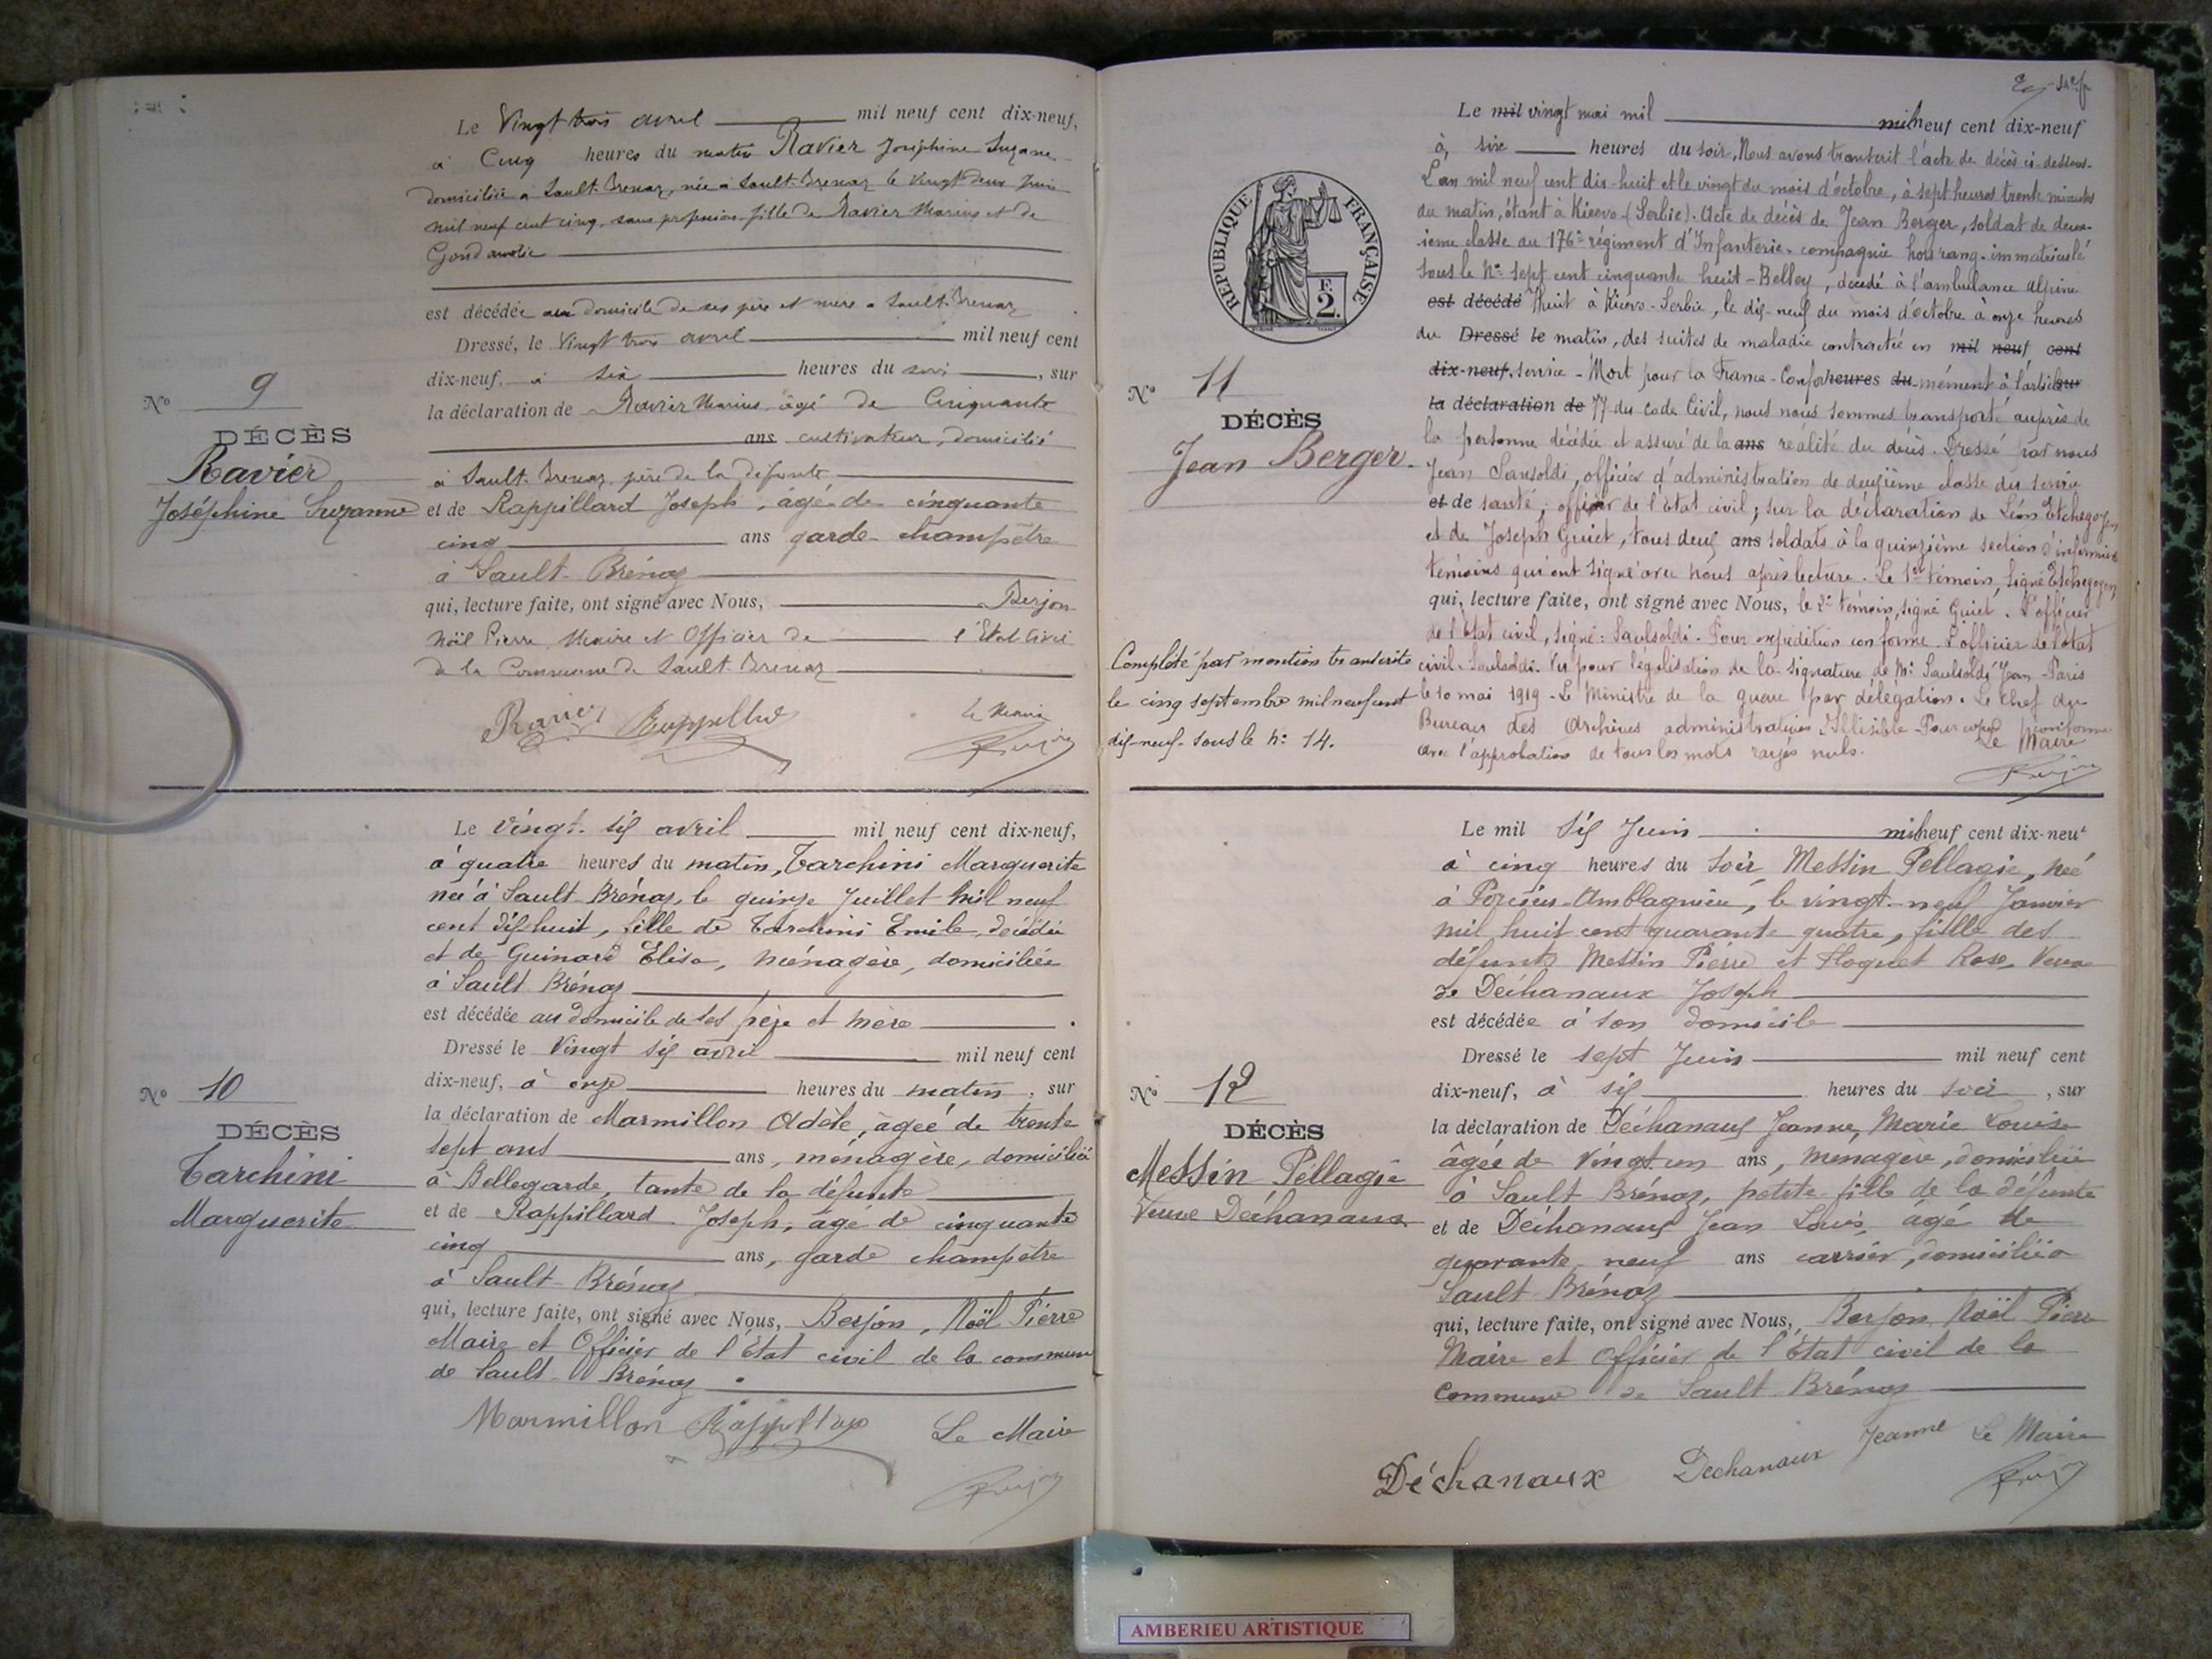 Le Vingt trois avril mil neuf cent dix-neuf,
à Cinq heures du matin Ravier Joséphine Suzane
domiciliée à Sault-Brenaz, née à Sault-Brenaz le Vingt deux Juin
mil neuf cent cinq, sans profession fille de Ravier Marius et de
Gond amélie
est décédée au domicile de ses père et mère à Sault-Brenaz
Dressé, le Vingt trois avril mil neuf cent
dix-neuf, à six heures du soir, sur
la déclaration de Ravier Marius âgé de Cinquante
ans cultivateur, domicilié
à Sault-Brenaz, père de la défunte
et de Rappillard Joseph, âgé de cinquante
cinq ans garde-champêtre
à Sault-Brénaz
qui, lecture faite, ont signé avec Nous, Berjon
Noël Pierre, Maire et Officier de l'Etat Civil
de la Commune de Sault-Brenaz
Ravier Le Maire
No 9
DÉCÈS
Ravier
Joséphine Suzanne
Le Vingt-six avril mil neuf cent dix-neuf,
à quatre heures du matin, Tarchini Marguerite
née à Sault-Brénaz, le quinze Juillet mil neuf
cent dix huit, fille de Tarchini Emile, décédé
et de Guinard Elisa, ménagère, domiciliée
à Sault Brénaz
est décédée au domicile de ses père et mère.
Dressé le Vingt six avril mil neuf cent
dix-neuf, à onze heures du matin, sur
la déclaration de Marmillon Adèle, âgée de trente
sept ans ans, ménagère, domiciliée
à Bellegarde, tante de la défunte
et de Rappillard Joseph, âgé de cinquante
cinq ans, garde champêtre
à Sault-Brénaz
qui, lecture faite, ont signé avec Nous, Berjon, Noël Pierre
Maire et Officier de l'Etat civil de la commune
de Sault-Brénaz
Marmillon Le Maire
No 10
DÉCÈS
Tarchini
Marguerite
Le mil vingt mai mil mil neuf cent dix-neuf
à, six heures du soir, Nous avons transcrit l'acte de décès ci-dessous.
L'an mil neuf cent dix-huit et le vingt du mois d'octobre, à sept heures trente minutes
du matin, étant à Kicevo-(Serbie). Acte de décès de Jean Berger, soldat de deux-
ième classe au 176e régiment d'Infanterie-compagnie hors rang-immatriculé
sous le No sept cent cinquante huit-Belley, décédé à l'ambulance alpine
est décédé huit à Kicevo-Serbie, le dix-neuf du mois d'octobre à onze heures
du Dressé le matin, des suites de maladie contractée en mil neuf cent
dix-neuf, service-Mort pour la France-Conforheures du-mément à l'article sur
la déclaration de 77 du code Civil, nous nous sommes transporté auprès de
la personne décédée et assuré de la ans réalité du décès. Dressé par nous
Jean officier d'administration de deuxième classe du service
et de santé, officier de l'Etat civil; sur la déclaration de Léon Etchegoyen
et de Joseph Guiet, tous deux ans soldats à la quinzième section d'infirmiers
témoins qui ont signé avec nous après lecture. Le 1er témoin, signé Etchegoyen
qui, lecture faite, ont signé avec Nous, le 2e témoin, signé Guiet. L'officier
de l'Etat civil, signé: Saulsoldi. Pour expédition conforme. L'officier de l'état
civil. Saulsoldi. Vu pour légalisation de la signature de Mr Saulsoldi Jean-Paris
le 10 mai 1919-Le Ministre de la guerre par délégation. Le chef du
Bureau des Archives administratives. Illisible-Pour copie conforme
avec l'approbation de tous les mots rayés nuls. Le Maire
RÉPUBLIQUE FRANÇAISE
2F.
No 11
DÉCÈS
Jean Berger
Complété par mention transcrite
le cinq septembre mil neuf cent
dix-neuf-sous le No 14.
Le mil Six Juin mil neuf cent dix-neuf
à cinq heures du soir Messin Pellagie, née
à le vingt-neuf Janvier
mil huit cent quarante quatre, fille des
défunts Messin Pierre et Floquet Rose, Veuve
de Déchanaux Joseph
est décédée à son domicile
Dressé le sept Juin mil neuf cent
dix-neuf, à six heures du soir, sur
la déclaration de Déchanaux Jeanne, Marie Louise
âgée de Vingt un ans, ménagère, domiciliée
à Sault Brénaz, petite fille de la défunte
et de Déchanaux Jean Louis, âgé de
quarante neuf ans carrier, domicilié à
Sault-Brénaz
qui, lecture faite, ont signé avec Nous, Berjon, Noël Pierre
Maire et Officier de l'Etat civil de la
commune de Sault-Brénaz
Déchanaux Dechanaux Jeanne Le Maire
No 12
DÉCÈS
Messin Péllagie
Veuve Déchanaux
AMBERIEU ARTISTIQUE